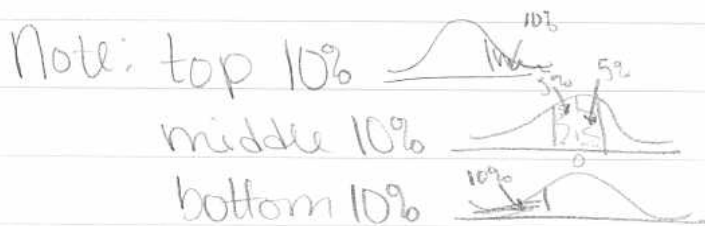 Note: top 10% 10%
5% 5%
middle 10%
0
10%
bottom 10%